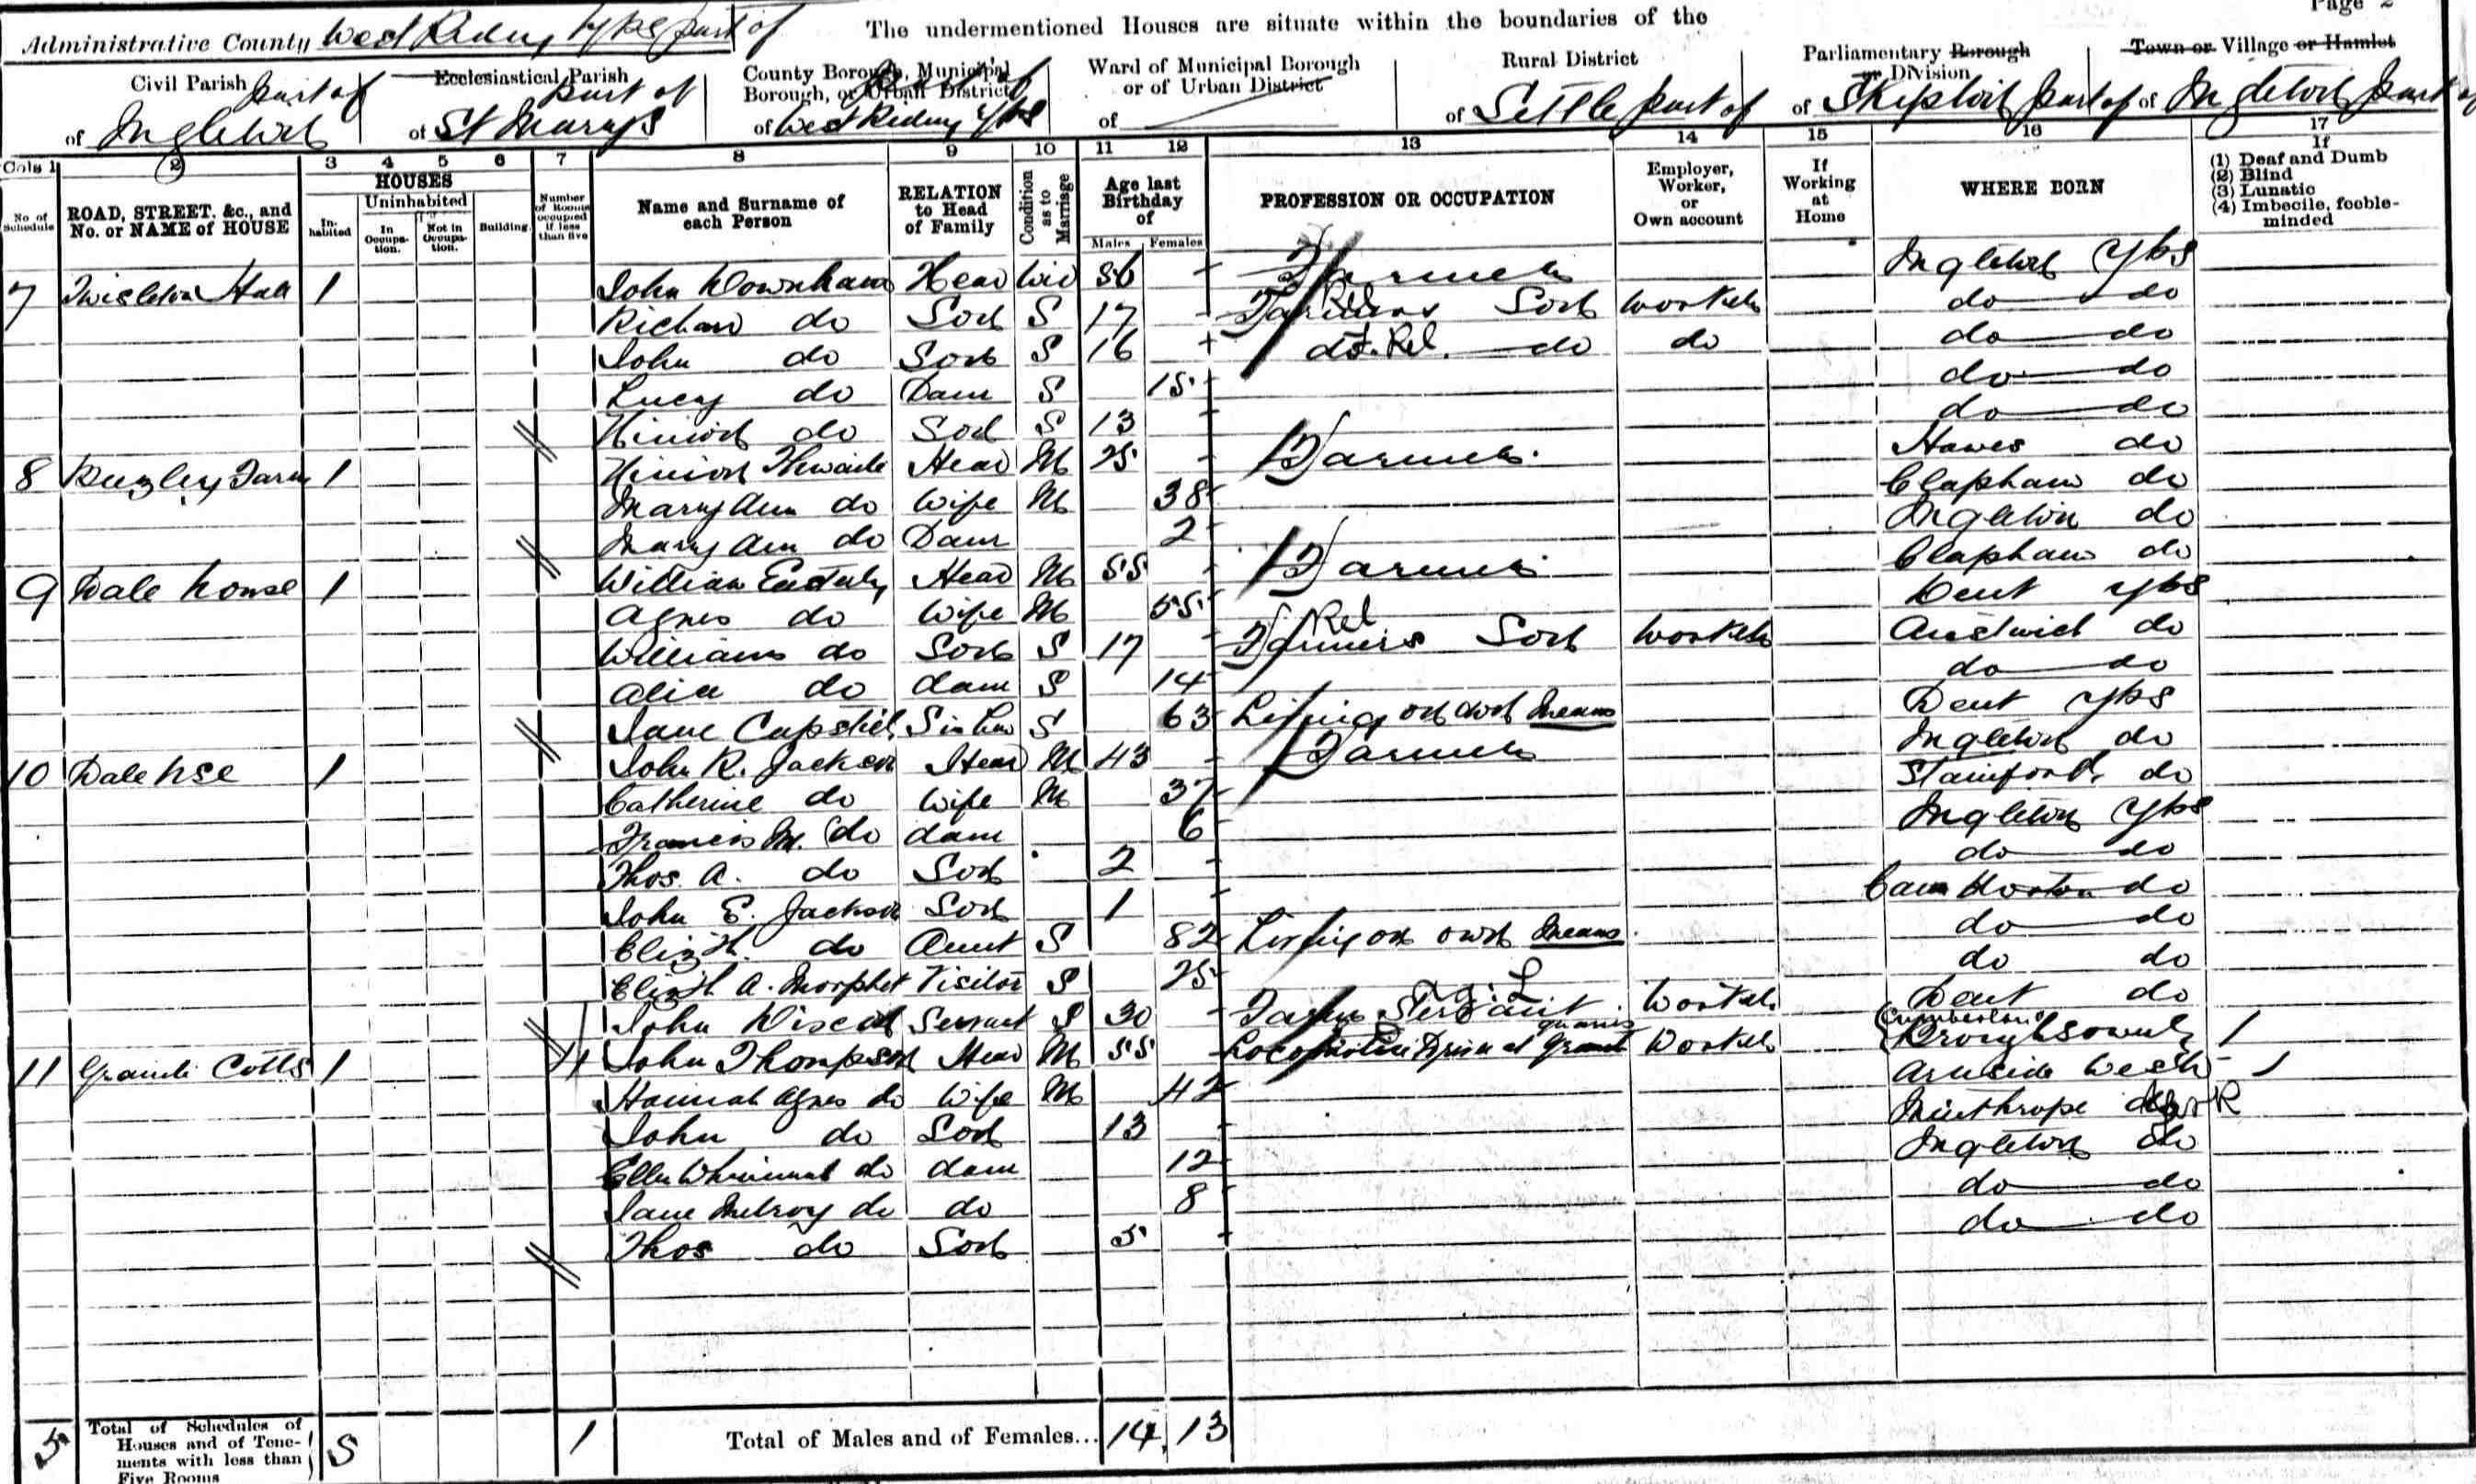 Page 2
Administrative County West Riding Yks part of
The undermentioned Houses are situate within the boundaries of the
Civil Parish part of
of Ingleton
Ecclesiastical Parish part of
of St Marys
County Borough, Municipal Borough, or Urban District
of West Riding Yks
Ward of Municipal Borough or of Urban District
of
Rural District
of Settle part of
Parliamentary Borough or Division
of Skipton part of
Town or Village or Hamlet
of Ingleton part of
Cols 1 2 3 4 5 6 7 8 9 10 11 12 13 14 15 16 17
No. of Schedule
ROAD, STREET, &c., and No. or NAME of HOUSE
HOUSES
Inhabited
Uninhabited
In Occupation.
Not in Occupation.
Building.
Number of Rooms occupied if less than five
Name and Surname of each Person
RELATION to Head of Family
Condition as to Marriage
Age last Birthday of
Males Females
PROFESSION OR OCCUPATION
Employer, Worker, or Own account
If Working at Home
WHERE BORN
If
(1) Deaf and Dumb
(2) Blind
(3) Lunatic
(4) Imbecile, feeble-minded
7 Twisleton Hall 1 John Downham Head Wid 56 Farmer Ingleton Yks
Richard do Son S 17 Farmers Son Rel Worker do do
John do Son S 16 do F.Rel. do do do do
Lucy do Daur S 15 do do
do Son S 13 do do
8 Farm 1 Thwaite Head M 25 Farmer Hawes do
Mary Ann do Wife M 38 Clapham do
Mary Ann do Daur 2 Ingleton do
9 Dale house 1 William Head M 55 Farmer Clapham do
Agnes do Wife M 55 Dent Yks
William do Son S 17 Farmers Son Rel Worker Austwick do
Alice do daur S 14 do do
Jane Capstick S in law S 63 Living on own Means Dent Yks
10 Dale hse 1 John R. Jackson Head M 43 Farmer Ingleton do
Catherine do Wife M 37 Stainforth do
Francis M. do daur 6 Ingleton Yks
Thos. A. do Son 2 do do
John E. Jackson Son 1 Cam Horton do
Elizth. do Aunt S 82 Living on own Means do do
Elizth A. Morphet Visitor S 25 do do
John Servant S 30 Farm Servant Ag. L Worker Dent do
11 Granite Cotts 1 4 John Thompson Head M 55 Locomotive Driver at Granite quarries Worker Cumberland
Hannah Agnes do Wife M 42 Arnside Westd
John do Son 13 Milnthorpe do
Ellen do daur 12 Ingleton do
Jane do do 8 do do
Thos do Son 5 do do
5 Total of Schedules of Houses and of Tenements with less than Five Rooms 5 1 Total of Males and of Females... 14 13